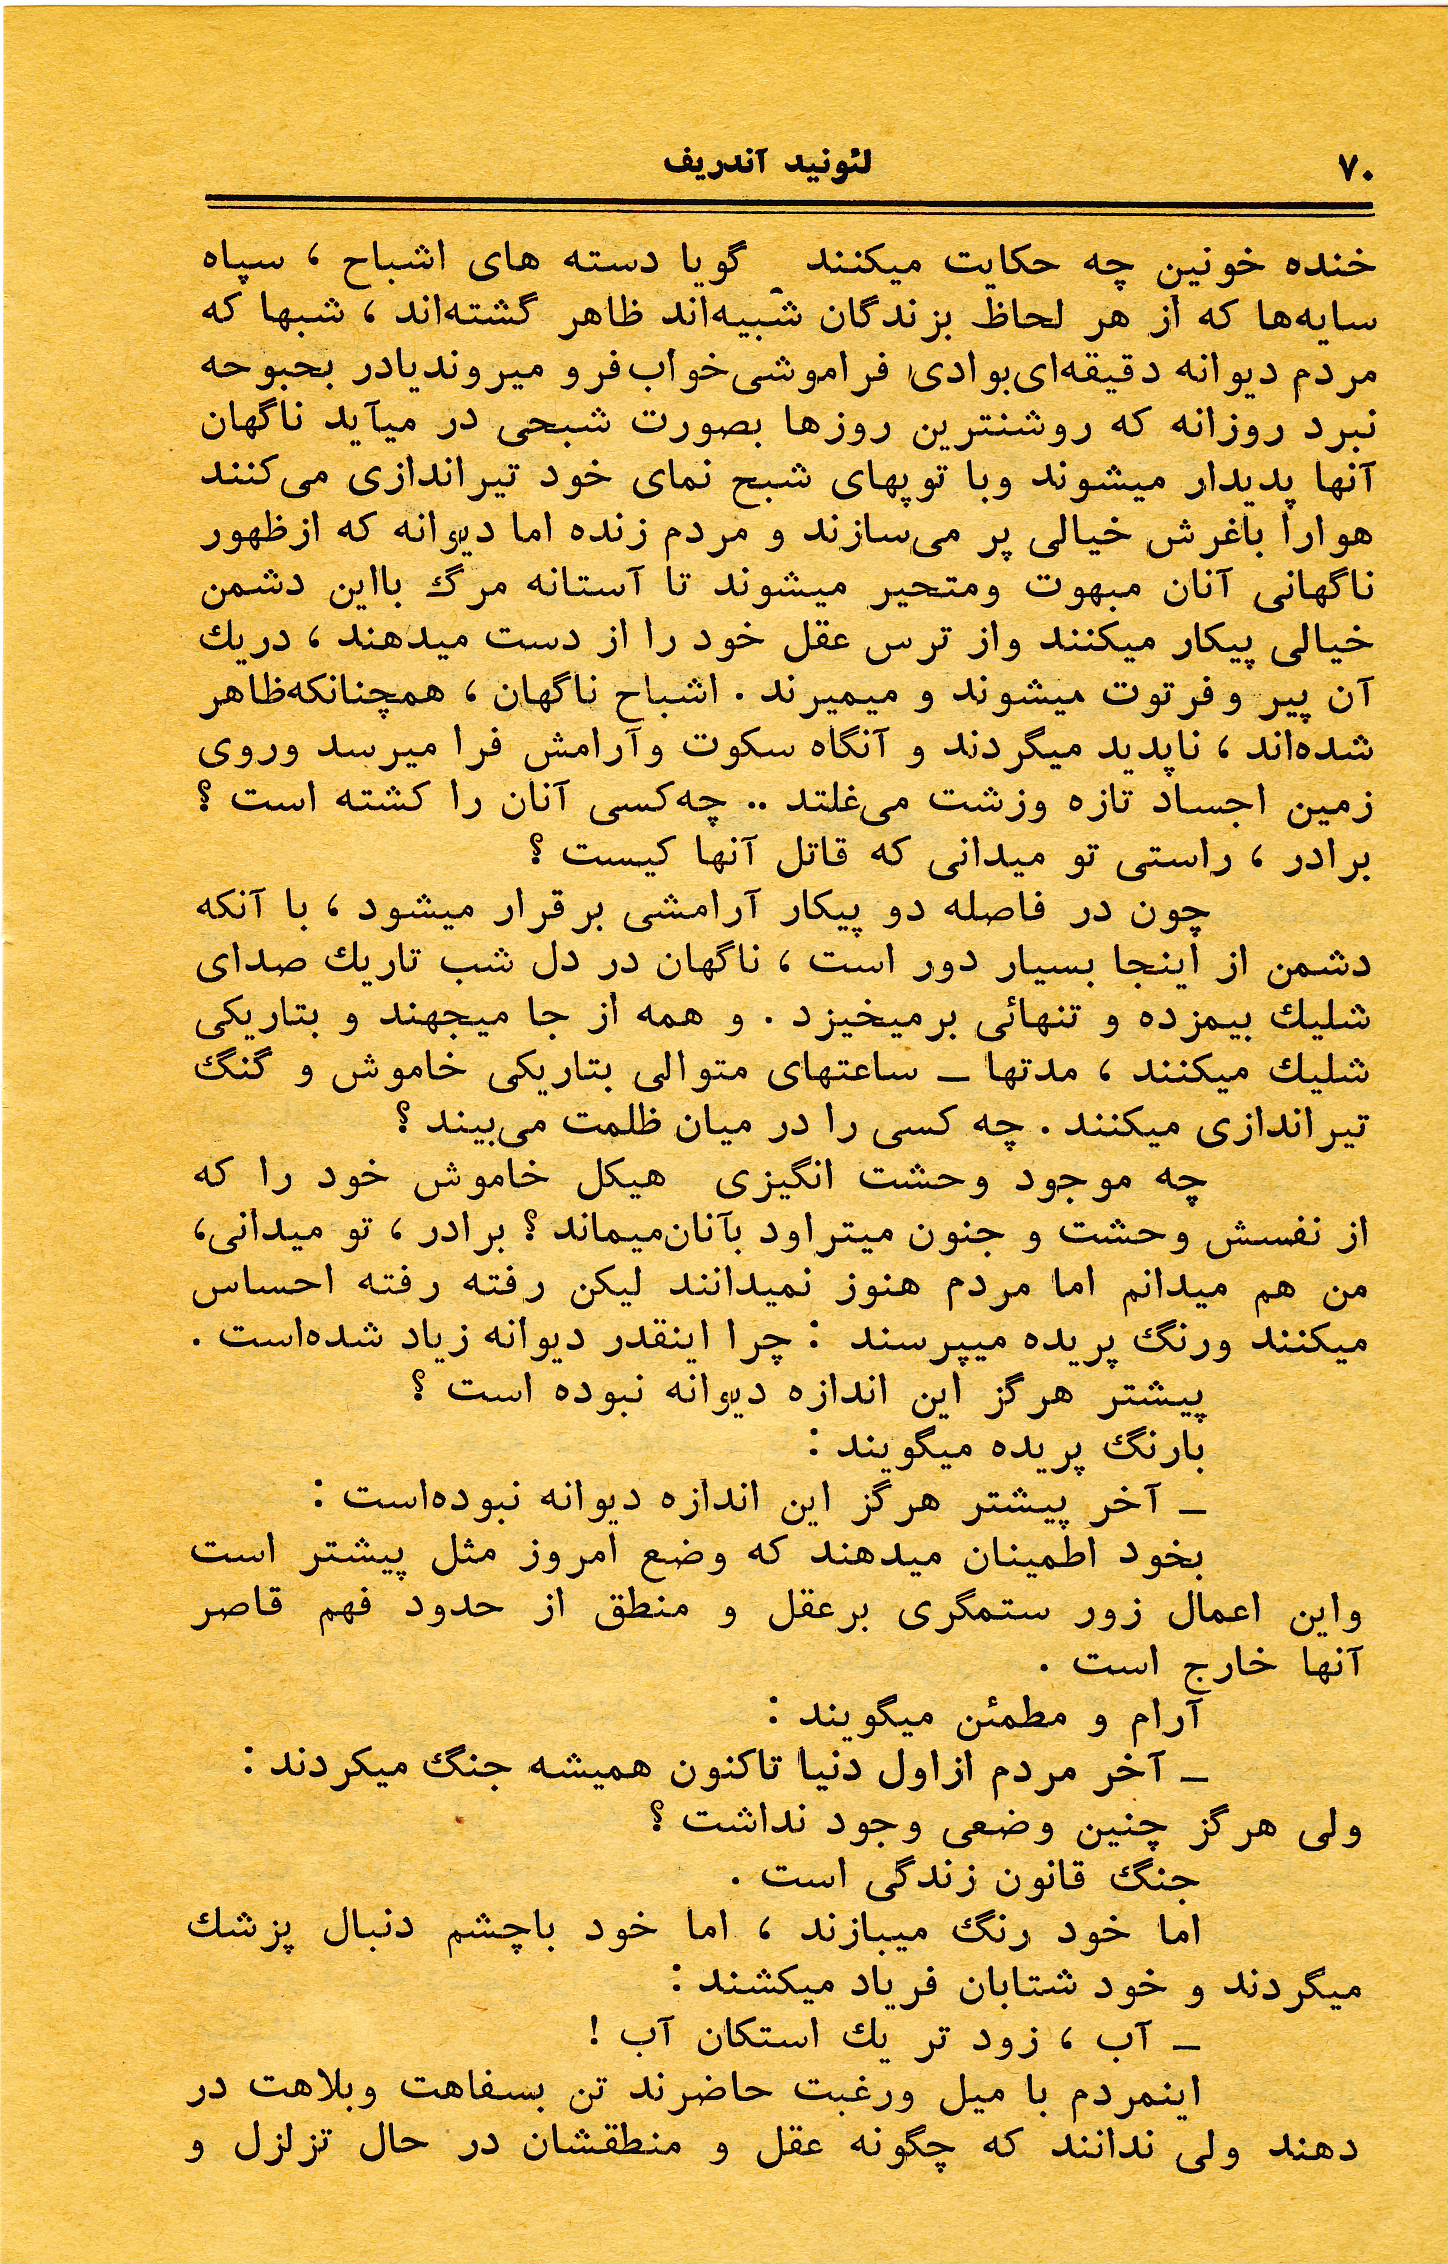 ۷۰
لئونید آندریف
خنده خونین چه حکایت میکنند گویا دسته های اشباح ، سپاه
سایه‌ها که از هر لحاظ بزندگان شبیه‌اند ظاهر گشته‌اند ، شبها که
مردم دیوانه دقیقه‌ای‌بوادی فراموشی‌خواب‌فرو میروندیادر بحبوحه
نبرد روزانه که روشنترین روزها بصورت شبحی در میآید ناگهان
آنها پدیدار میشوند وبا توپهای شبح نمای خود تیراندازی می‌کنند
هوارا باغرش خیالی پر می‌سازند و مردم زنده اما دیوانه که ازظهور
ناگهانی آنان مبهوت ومتحیر میشوند تا آستانه مرگ بااین دشمن
خیالی پیکار میکنند واز ترس عقل خود را از دست میدهند ، دریك
آن پیر وفرتوت میشوند و میمیرند . اشباح ناگهان ، همچنانکه‌ظاهر
شده‌اند ، ناپدید میگردند و آنگاه سکوت وآرامش فرا میرسد وروی
زمین اجساد تازه وزشت می‌غلتد .. چه‌کسی آنان را کشته است ؟
برادر ، راستی تو میدانی که قاتل آنها کیست ؟
چون در فاصله دو پیکار آرامشی برقرار میشود ، با آنکه
دشمن از اینجا بسیار دور است ، ناگهان در دل شب تاریك صدای
شلیك بیمزده و تنهائی برمیخیزد . و همه از جا میجهند و بتاریکی
شلیك میکنند ، مدتها ــ ساعتهای متوالی بتاریکی خاموش و گنگ
تیراندازی میکنند . چه کسی را در میان ظلمت می‌بیند ؟
چه موجود وحشت انگیزی هیکل خاموش خود را که
از نفسش وحشت و جنون میتراود بآنان‌میماند ؟ برادر ، تو میدانی،
من هم میدانم اما مردم هنوز نمیدانند لیکن رفته رفته احساس
میکنند ورنگ پریده میپرسند : چرا اینقدر دیوانه زیاد شده‌است .
پیشتر هرگز این اندازه دیوانه نبوده است ؟
بارنگ پریده میگویند :
ــ آخر پیشتر هرگز این اندازه دیوانه نبوده‌است :
بخود اطمینان میدهند که وضع امروز مثل پیشتر است
واین اعمال زور ستمگری برعقل و منطق از حدود فهم قاصر
آنها خارج است .
آرام و مطمئن میگویند :
ــ آخر مردم ازاول دنیا تاکنون همیشه جنگ میکردند :
ولی هرگز چنین وضعی وجود نداشت ؟
جنگ قانون زندگی است .
اما خود رنگ میبازند ، اما خود باچشم دنبال پزشك
میگردند و خود شتابان فریاد میکشند :
ــ آب ، زود تر یك استکان آب !
اینمردم با میل ورغبت حاضرند تن بسفاهت وبلاهت در
دهند ولی ندانند که چگونه عقل و منطقشان در حال تزلزل و